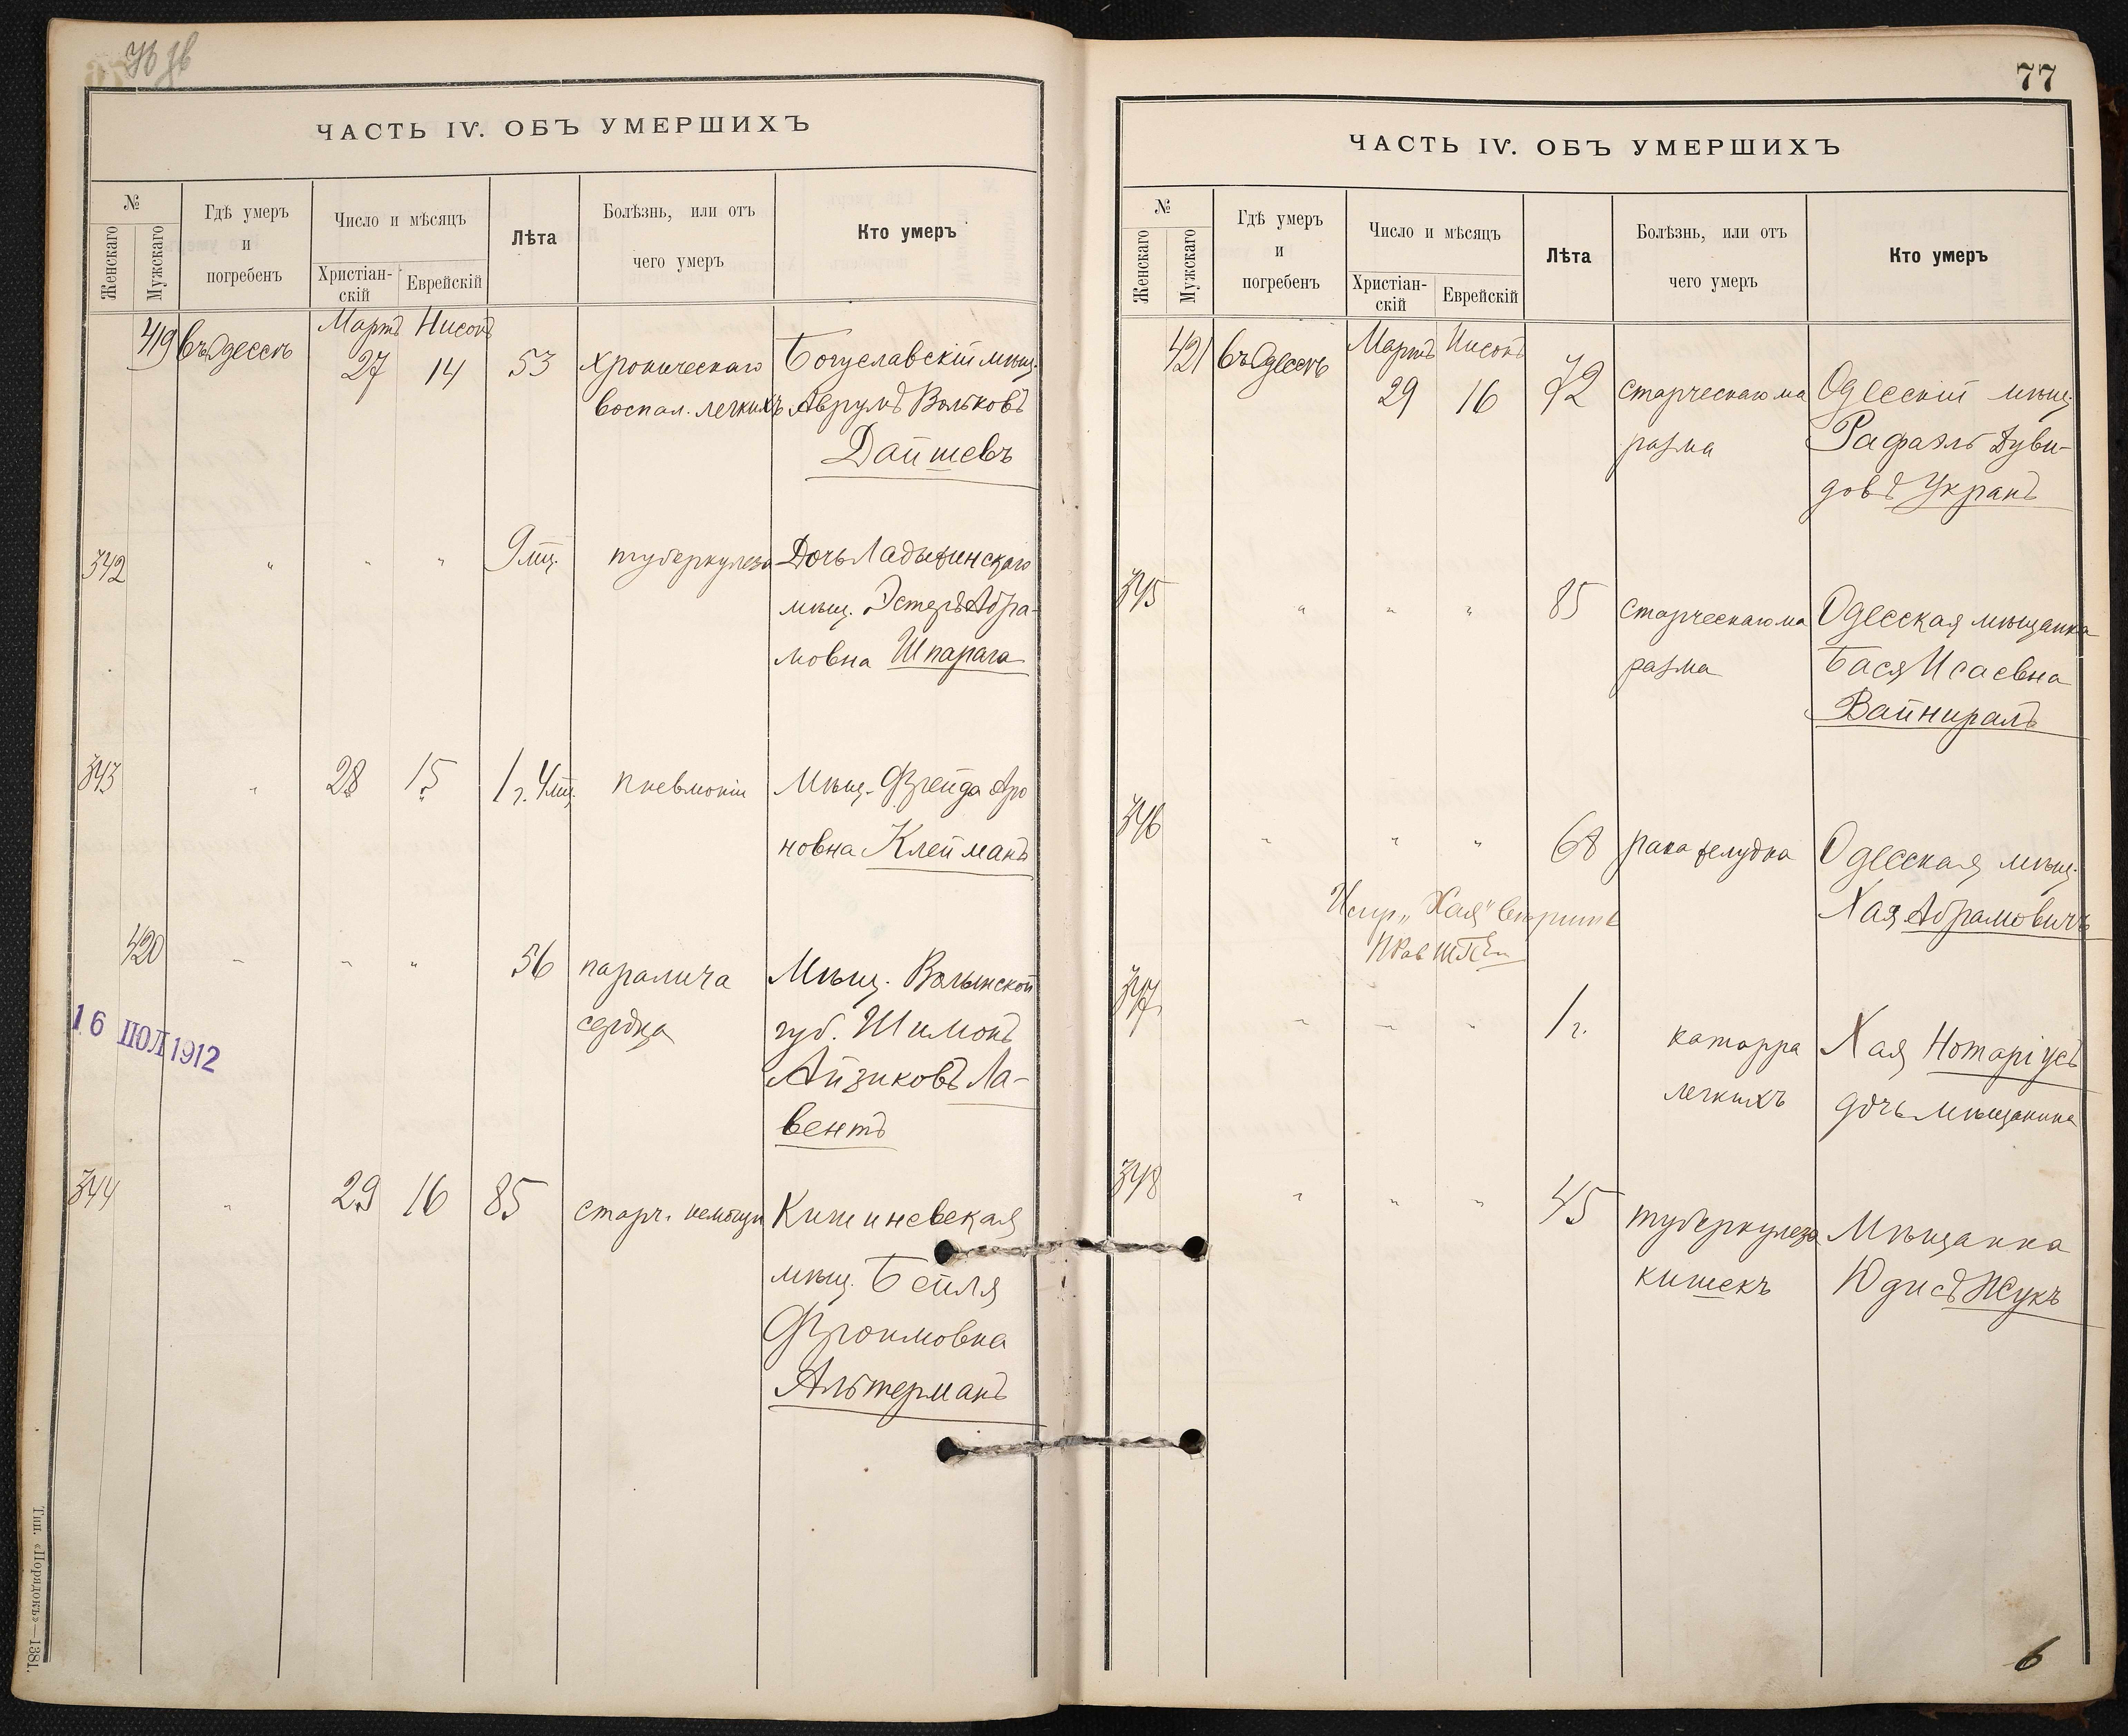 ЧАСТЬ IV. ОБЪ УМЕРШИХЪ
№
Женскаго
Мужскаго
Гдѣ умеръ
и
погребенъ
Число и мѣсяцъ
Христіан-
скій
Еврейскій
Лѣта
Болѣзнь, или отъ
чего умеръ
Кто умеръ
Мартъ Нисонъ
419 въ Одессѣ 27 14 53 хроническаго Богуславскій мѣщ.
воспал. легкихъ Аврумъ Вольковъ
Дайшевъ
342 " " " 9 мц. туберкулеза Дочь Ладыжинскаго
мѣщ. Эстеръ Абра-
мовна Шпарага
343 " 28 15 1 г. 4 мц. пневмоніи Мѣщ. Фрейда Аро
новна Клейманъ
420 " " " 56 паралича Мѣщ. Волынской
сердца губ. Шимонъ
Айзиковъ Ла-
вентъ
16 ІЮЛ 1912
344 " 29 16 85 старч. немощи Кишиневская
мѣщ. Бейля
Фроимовна
Альтерманъ
Тип. «Порядокъ»—1381.
77
ЧАСТЬ IV. ОБЪ УМЕРШИХЪ
№
Женскаго
Мужскаго
Гдѣ умеръ
и
погребенъ
Число и мѣсяцъ
Христіан-
скій
Еврейскій
Лѣта
Болѣзнь, или отъ
чего умеръ
Кто умеръ
Мартъ Нисонъ
421 въ Одессѣ 29 16 72 старческаго ма Одесскій мѣщ.
разма Рафаэль Дуви-
довъ Укранъ
345 " " " 85 старческаго ма Одесская мѣщанка
разма Бася Исаевна
Вайниралъ
346 " " " 68 рака желудка Одесская мѣщ.
Хая Абрамовичъ
Испр. „Хая" вѣрить
347 " " " 1 г. катарра Хая Нотаріусъ
легкихъ дочь мѣщанина
348 " " " 45 туберкулеза Мѣщанка
кишекъ Юдисъ Жукъ
6